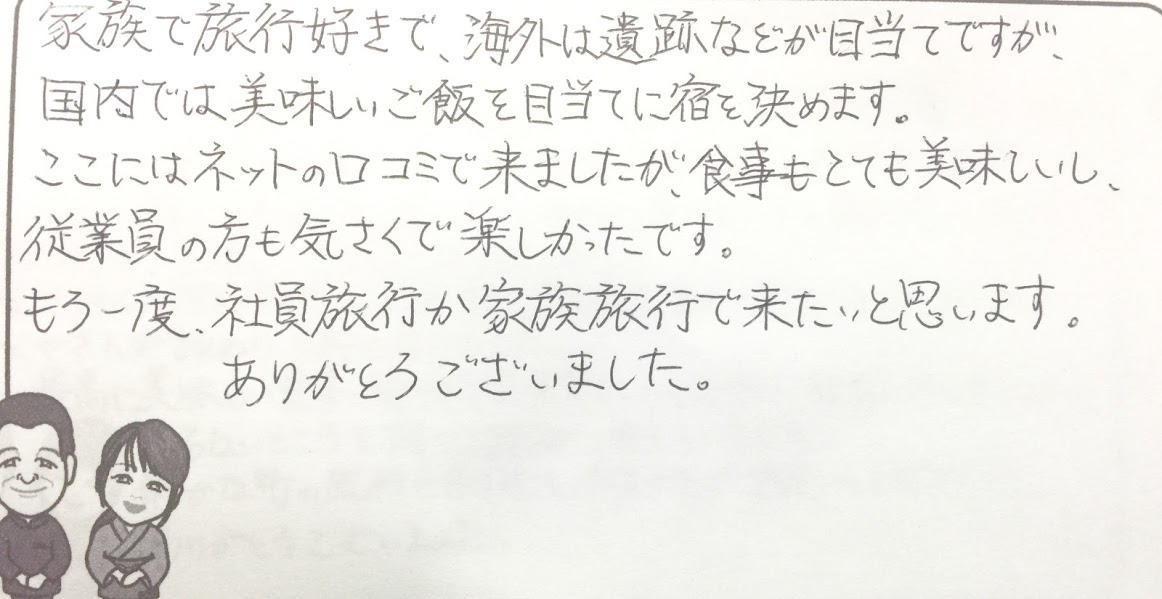 家族で旅行好きで、海外は遺跡などが目当てですが、
国内では美味しいご飯を目当てに宿を決めます。
ここにはネットの口コミで来ましたが、食事もとても美味しいし、
従業員の方も気さくで楽しかったです。
もう一度、社員旅行か家族旅行で来たいと思います。
ありがとうございました。